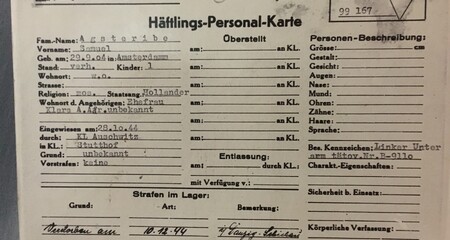 99 167
Häftlings-Personal-Karte
Fam.-Name: Agsteribe
Vorname: Samuel
Geb. am: 29.9.04 in Amsterdamm
Stand: verh. Kinder: 1
Wohnort: w.o.
Strasse:
Religion: mos. Staatsang. Holländer
Wohnort d. Angehörigen: Ehefrau
Klara A. Agr. unbekannt
Eingewiesen am: 28.10.44
durch: KL Auschwitz
in KL.: Stutthof
Grund: unbekannt
Vorstrafen: keine
Überstellt
am: an KL.
am: an KL.
am: an KL.
am: an KL.
am: an KL.
am: an KL.
Entlassung:
am: durch KL.:
mit Verfügung v.:
Personen-Beschreibung:
Grösse: cm
Gestalt:
Gesicht:
Augen:
Nase:
Mund:
Ohren:
Zähne:
Haare:
Sprache:
Bes. Kennzeichen: Linker Unter
arm tätov. Nr. B-9110
Charakt.-Eigenschaften:
Sicherheit b. Einsatz:
Körperliche Verfassung:
Strafen im Lager:
Grund: Art: Bemerkung:
am 10.12.44